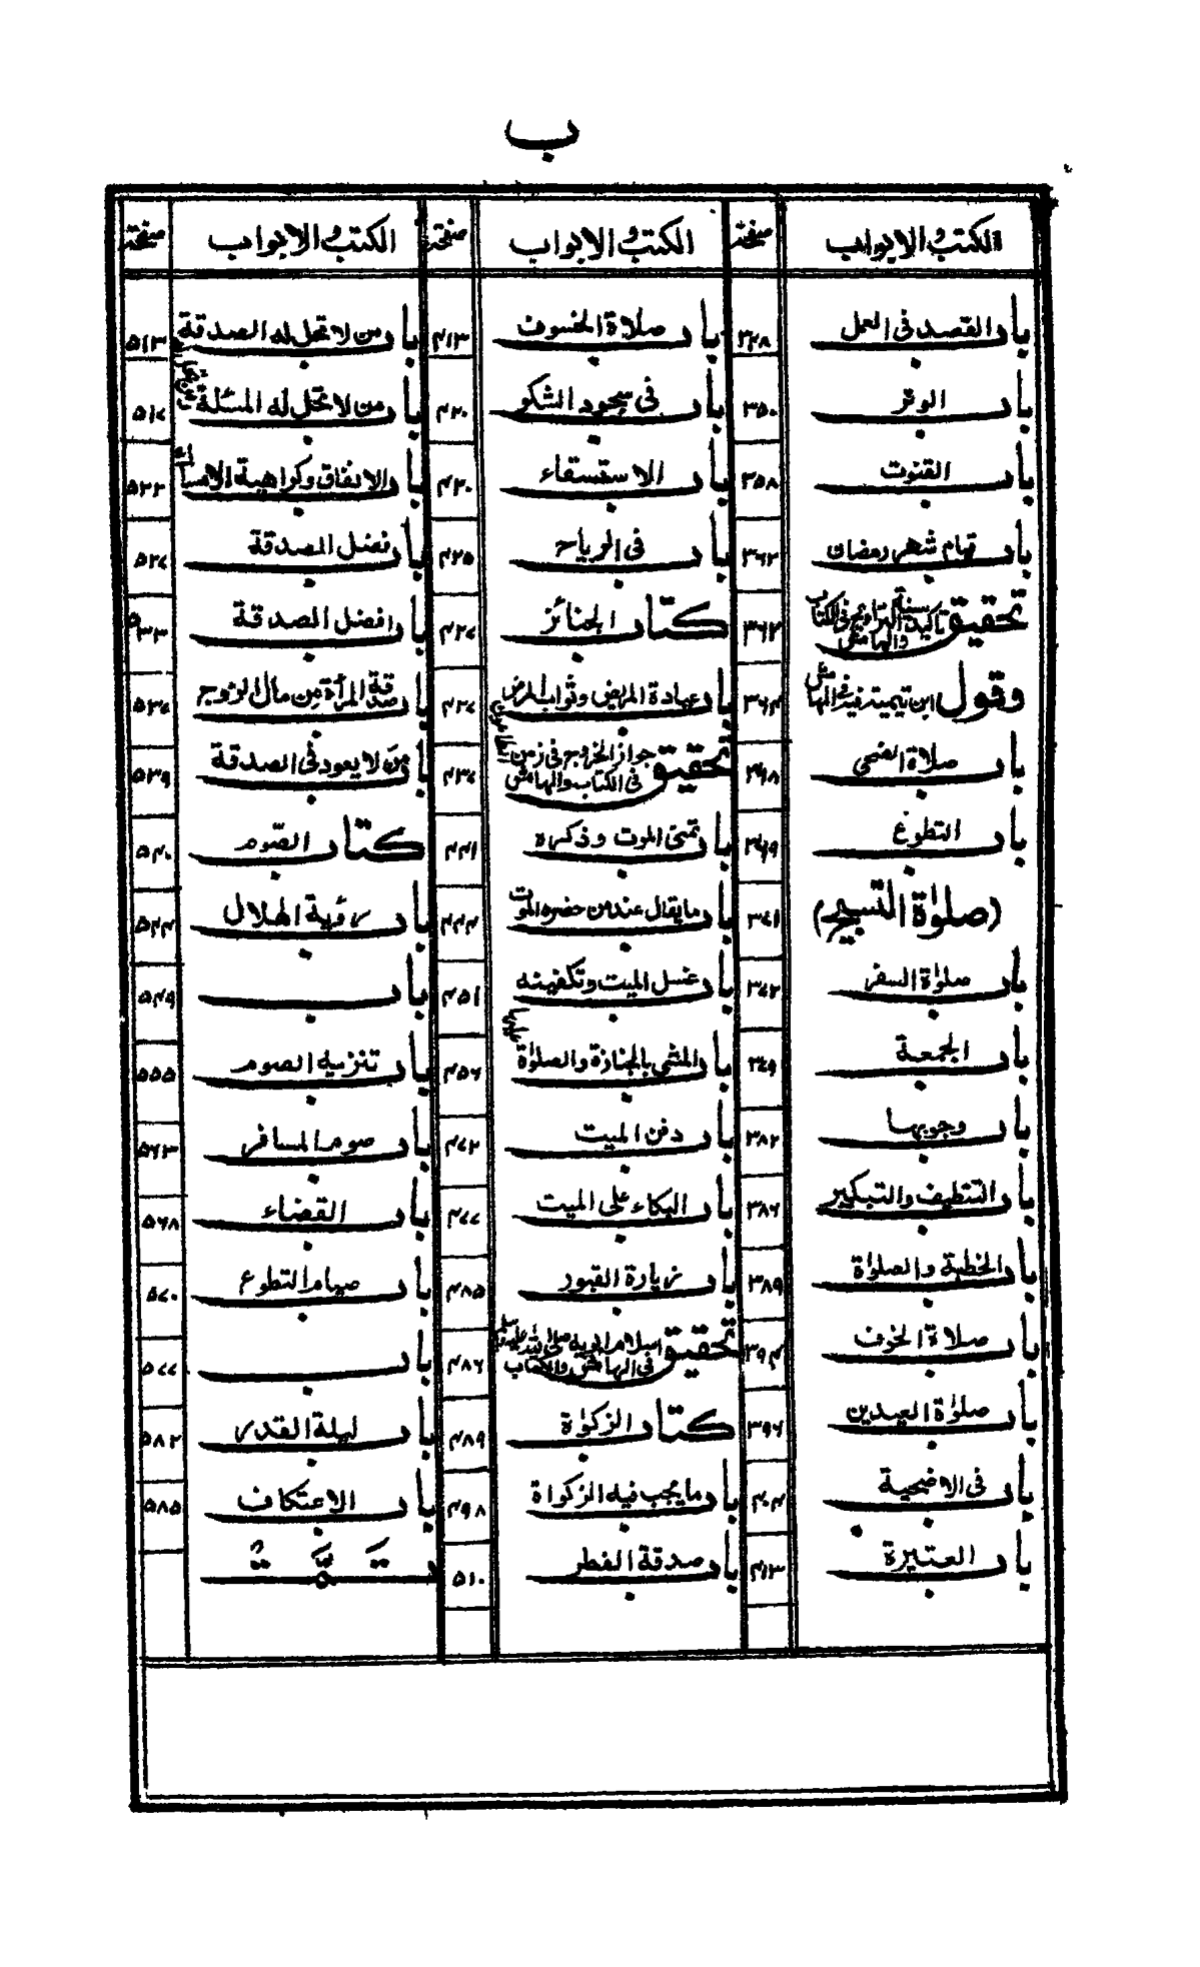 ب
الكتب والابواب صفحة الكتب والابواب صفحة الكتب والابواب صفحة
باب القصد فى العمل ۳۴۸
باب الوتر ۳۵۰
باب القنوت ۳۵۸
باب قيام شهر رمضان ۳۶۲
تحقيق تاكيد سنة التراويح فى الكتاب والهامش ۳۶۲
وقول ابن تيمية فيه فى الهامش ۳۶۴
باب صلاة الضحى ۳۶۸
باب التطوع ۳۶۹
(صلوٰة التسبيح) ۳۷۱
باب صلوٰة السفر ۳۷۲
باب الجمعة ۳۷۹
باب وجوبها ۳۸۲
باب التنظيف والتبكير ۳۸۶
باب الخطبة والصلوٰة ۳۸۹
باب صلاة الخوف ۳۹۴
باب صلوٰة العيدين ۳۹۶
باب فى الاضحية ۴۰۴
باب العتيرة ۴۱۳
باب صلاة الخسوف ۴۱۳
باب فى سجود الشكر ۴۲۰
باب الاستسقاء ۴۲۰
باب فى الرياح ۴۲۵
كتاب الجنائز ۴۲۷
باب عيادة المريض وثواب المرض ۴۲۷
تحقيق جواز الخروج فى زمن الطاعون فى الكتاب والهامش ۴۳۷
باب تمنى الموت وذكره ۴۴۱
باب ما يقال عند من حضره الموت ۴۴۴
باب غسل الميت وتكفينه ۴۵۱
باب المشى بالجنازة والصلوٰة عليها ۴۵۶
باب دفن الميت ۴۷۲
باب البكاء على الميت ۴۷۷
باب زيارة القبور ۴۸۵
تحقيق اسلام ابويه صلى الله عليه وسلم فى الهامش والكتاب ۴۸۶
كتاب الزكوٰة ۴۸۹
باب ما يجب فيه الزكواة ۴۹۸
باب صدقة الفطر ۵۱۰
باب من لا تحل له الصدقة ۵۱۳
باب من لا تحل له المسئلة ۵۱۷
باب الانفاق وكراهية الامساك ۵۲۲
باب فضل الصدقة ۵۲۷
باب افضل الصدقة ۵۳۳
باب صدقة المرأة من مال الزوج ۵۳۷
باب من لا يعود فى الصدقة ۵۳۹
كتاب الصّوم ۵۴۰
باب رؤية الهلال ۵۴۴
باب ۵۴۹
باب تنزيه الصوم ۵۵۵
باب صوم المسافر ۵۶۳
باب القضاء ۵۶۸
باب صيام التطوع ۵۷۰
باب ۵۷۷
باب ليلة القدر ۵۸۲
باب الاعتكاف ۵۸۵
تمت